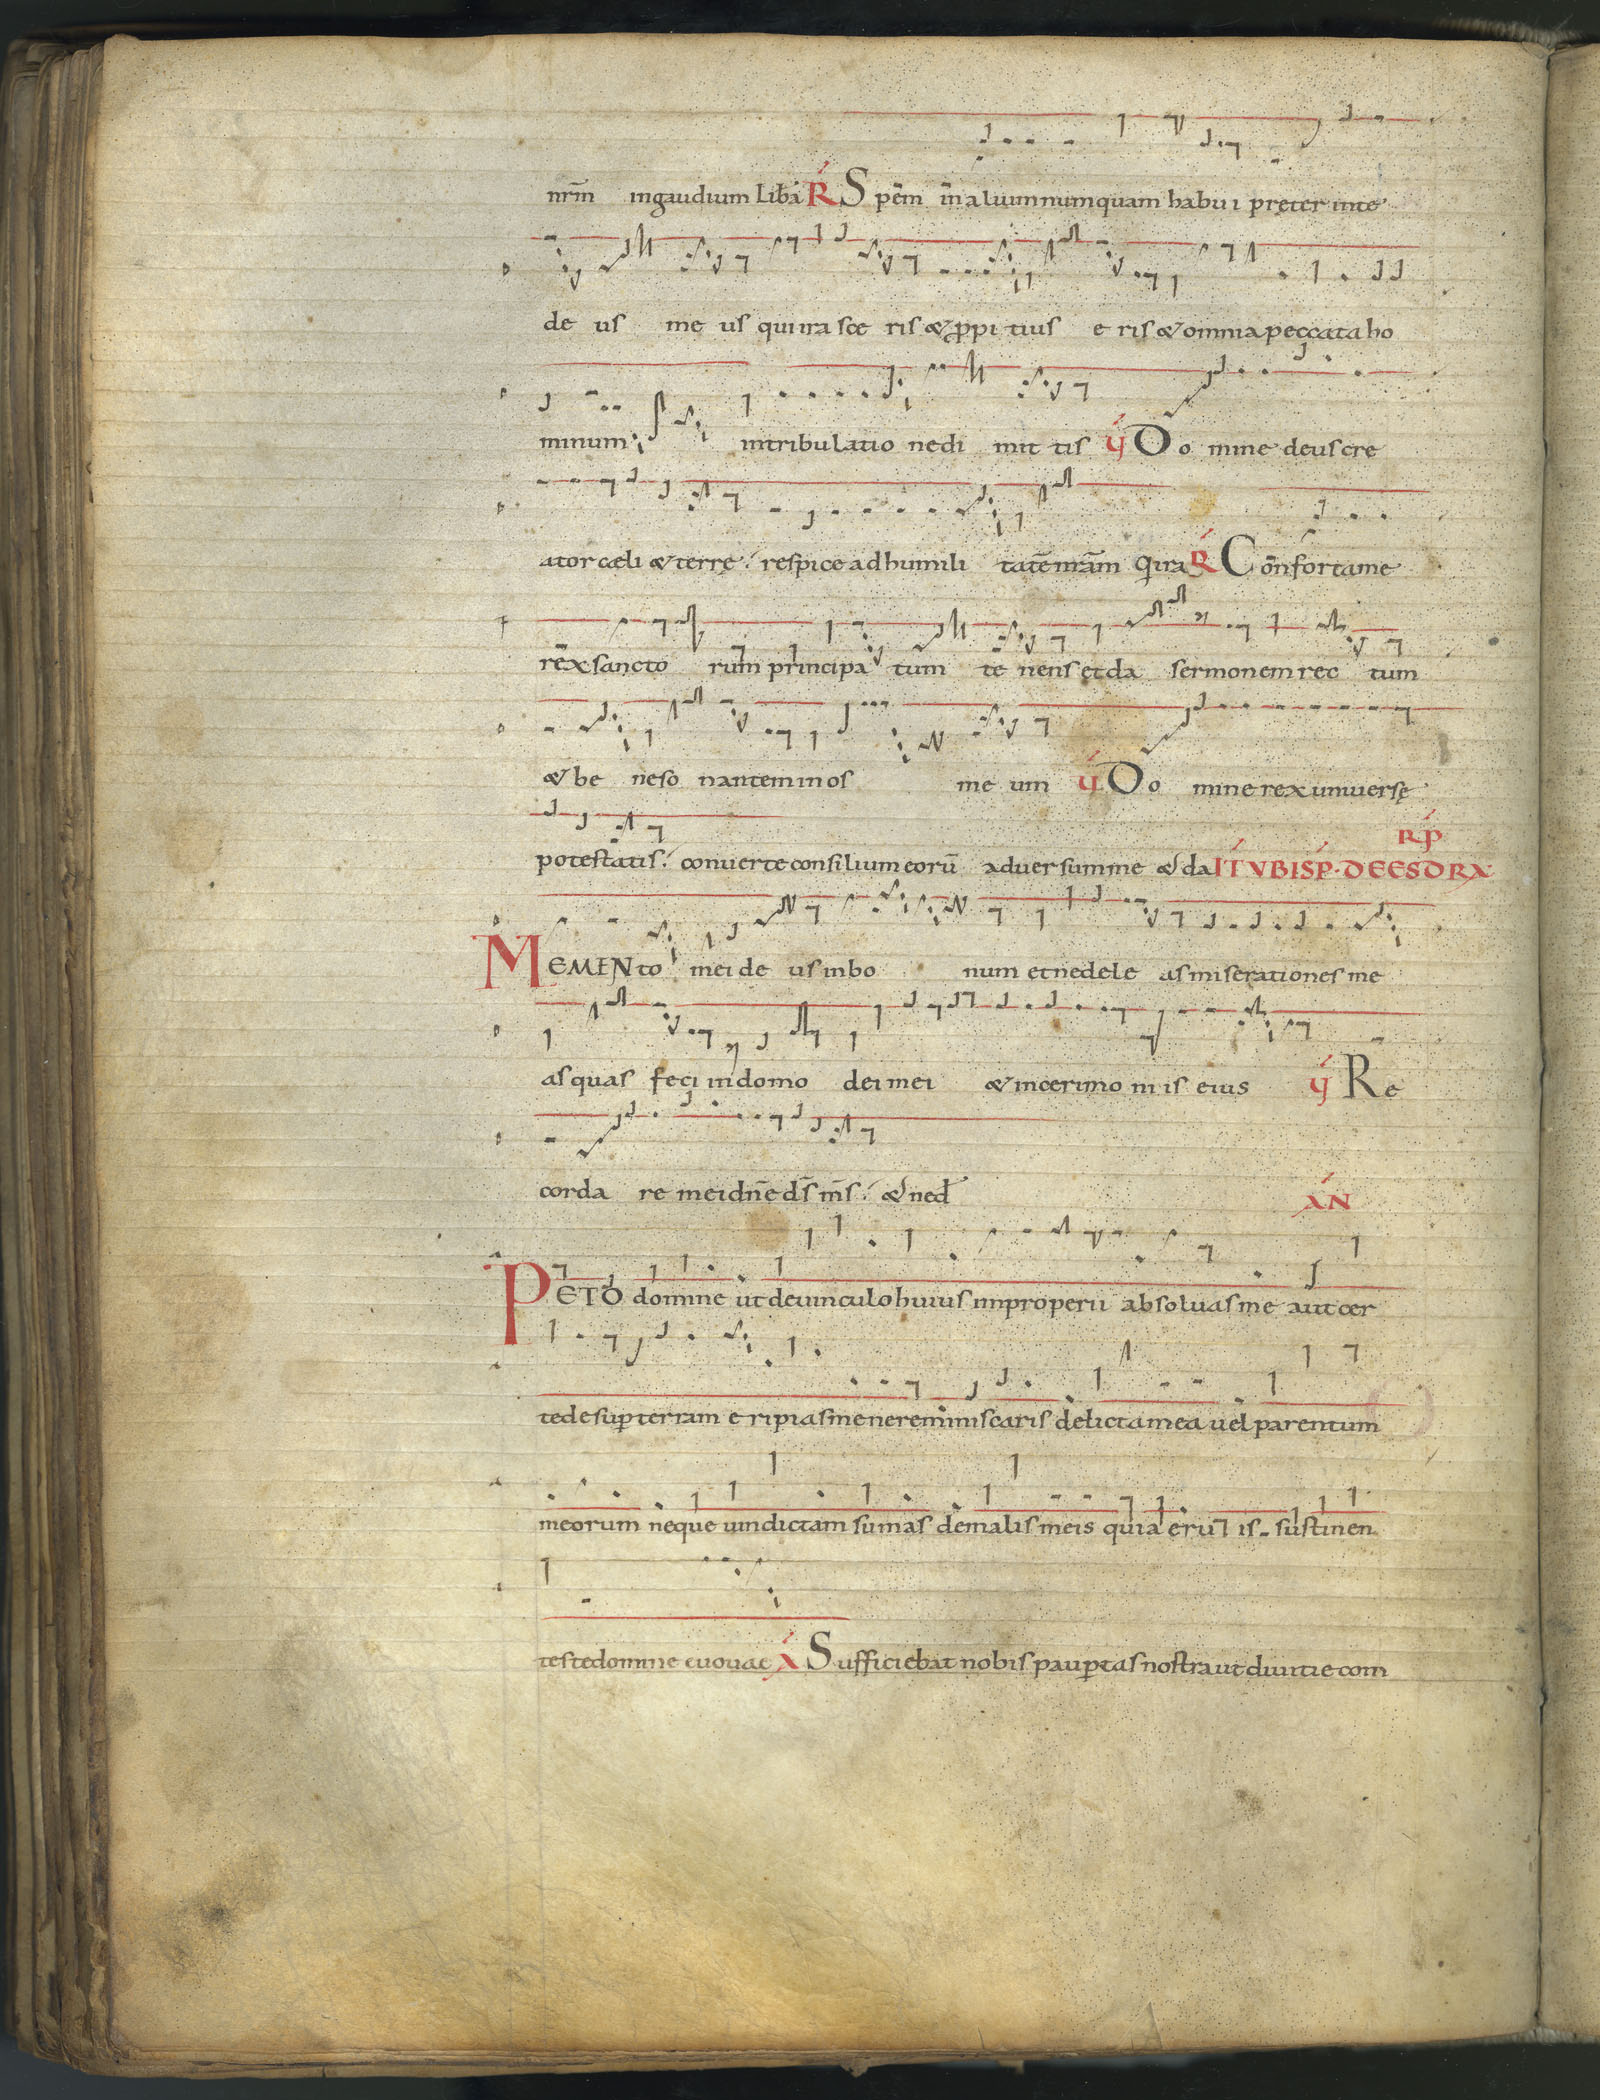 nr̄m ingaudium Lib̄a R̄ Spēm īn aluumnumquam habui pręter inte
de us me us qui ira sce ris & ꝓpi tius e ris & omnia peccata ho
minum intribulatio nedi mit tis ℣ Do mine deus cre
ator cæli & terrę: respice ad humili tatē nr̄am Qui ra R̄ Cōnfortame
rēx sancto rūm principa tūm tē nens et da sermonem rec tum
& be ne so nantem in os me um ℣ Do mine rex uniuersę
RP
potestatis: conuerte consilium eorū aduersum me & da ITVBISP· DE ESDRA
MEMENto mei de us in bo num et ne dele as miserationes me
as quas feci in domo dei mei & in cerimo niis eius ℣ Re
corda re mei dn̄e ds̄ ms̄: & ned
AN
PETO domine ut de uinculo huius improperii absoluas me aut cer
te desuꝑ terram e ripias me ne reminiscaris delicta mea uel parentum
meorum neque uindictam sumas de malis meis quia eru is - sustinen
tes te domine euouae A Sufficiebat nobis pauꝑtas nostra ut diuitie com